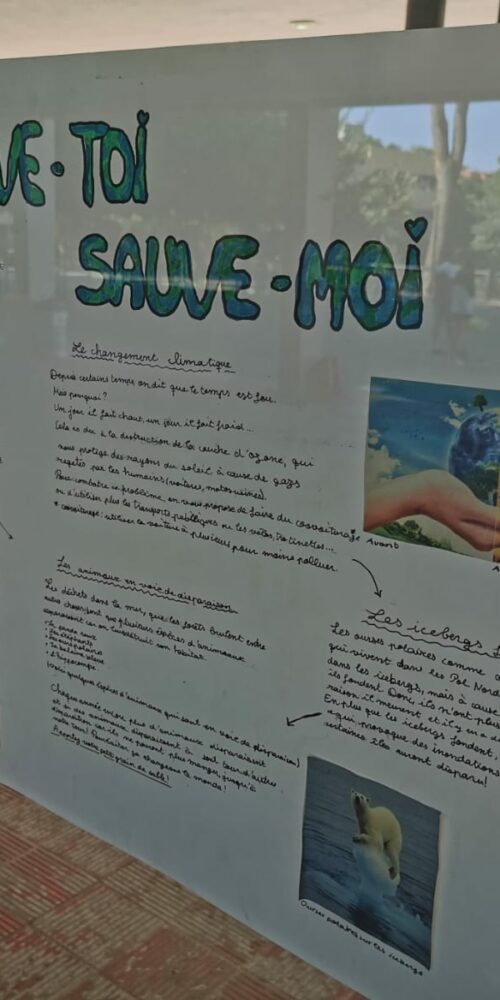 VE-TOI
SAUVE-MOI
Le changement climatique
Depuis certains temps on dit que le temps est fou.
Mais pourquoi?
Un jour il fait chaut, un jour il fait froid...
Cela es du à la destruction de la couche d'ozone, qui
nous protége des rayons du soleil à cause de gazs
regetés par les humains (voitures, motos, usines).
Pour combatre ce problème, on vous propose de faire du covoiturage*
ou d'utiliser plus les transports publiques ou les vélos, trotinettes...
* covoiturage: utiliser la voiture à plusieurs pour moins polluer.
Avant
Les animaux en voie de disparaison
Les déchets dans la mer, que les forêts brulent entre
autres choses, font que plusieurs espèces d'animaux
disparaissent car on traduit son habitat.
• Le panda roux
• Les éléphants
• La baleine bleue
• L'hippocampe
(voici quelques espèces d'animaux qui sont en voie de disparaison)
Chaque année encore plus d'animaux disparaissent
et si des animaux disparaissent à soit tour d'autres
disparaitront car ils ne pouront plus manger, jusqu'à
votre tour! Recycler, ça changera le monde!
Apportez votre petit grain de sable!
Les icebergs
Les ourses polaires comme
qui vivent dans les Pol Nord
dans les icebergs, mais à cause
ils fondent. Donc, ils n'ont plus
raison il meurent et il y en a
En plus que les icebergs fondent,
qui provoque des inondations
certaines îles auront disparu!
Ourses polaires sur les icebergs